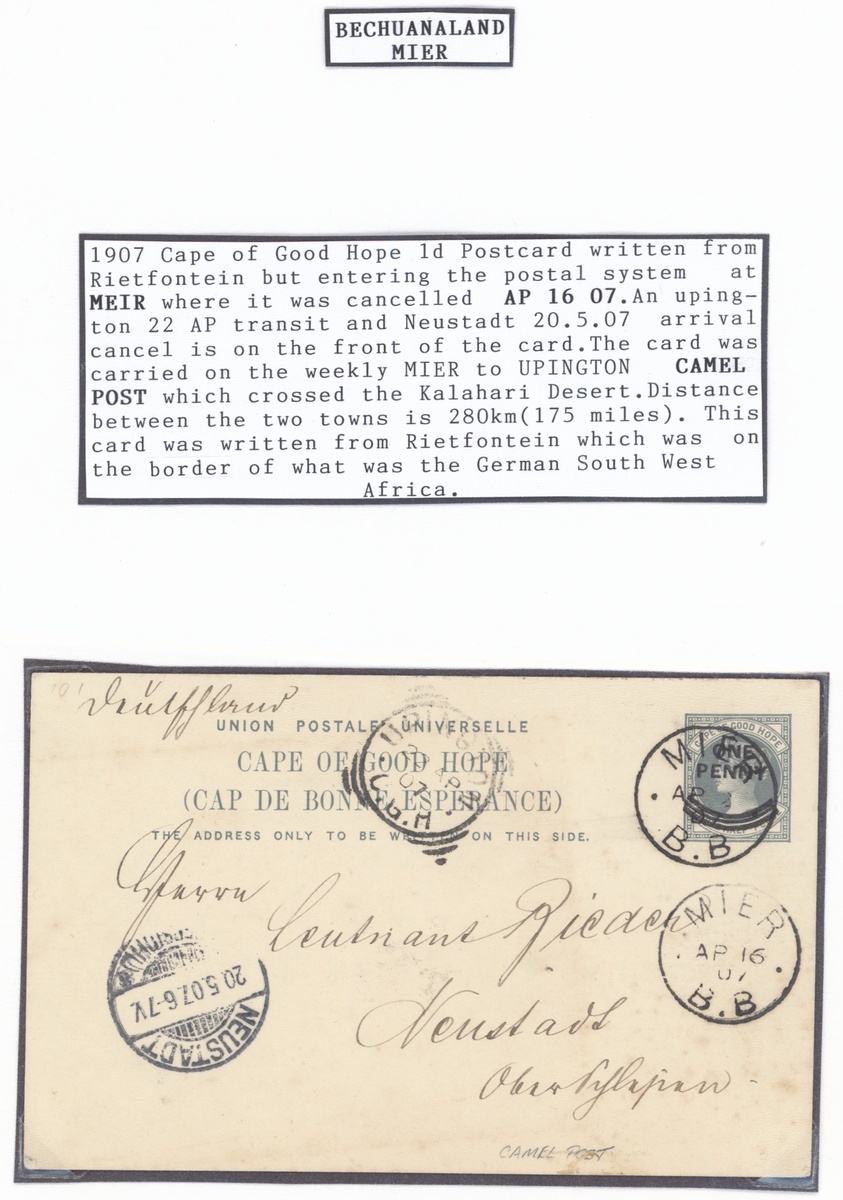 BECHUANALAND
MIER
1907 Cape of Good Hope 1d Postcard written from
Rietfontein but entering the postal system at
MEIR where it was cancelled AP 16 07.An uping-
ton 22 AP transit and Neustadt 20.5.07 arrival
cancel is on the front of the card.The card was
carried on the weekly MIER to UPINGTON CAMEL
POST which crossed the Kalahari Desert.Distance
between the two towns is 280km(175 miles). This
card was written from Rietfontein which was on
the border of what was the German South West
Africa.
Deutschland
UNION POSTALE UNIVERSELLE
CAPE OF GOOD HOPE
(CAP DE BONNE ESPERANCE)
THE ADDRESS ONLY TO BE WRITTEN ON THIS SIDE.
CAPE OF GOOD HOPE
ONE
PENNY
MIER
AP
07
B.B
C.G.H
AP
07
Herrn
Leutnant Rieder
MIER
AP 16
07
B.B
20.5.07.6-7V.
NEUSTADT
Neustadt
Oberschlesien
CAMEL POST